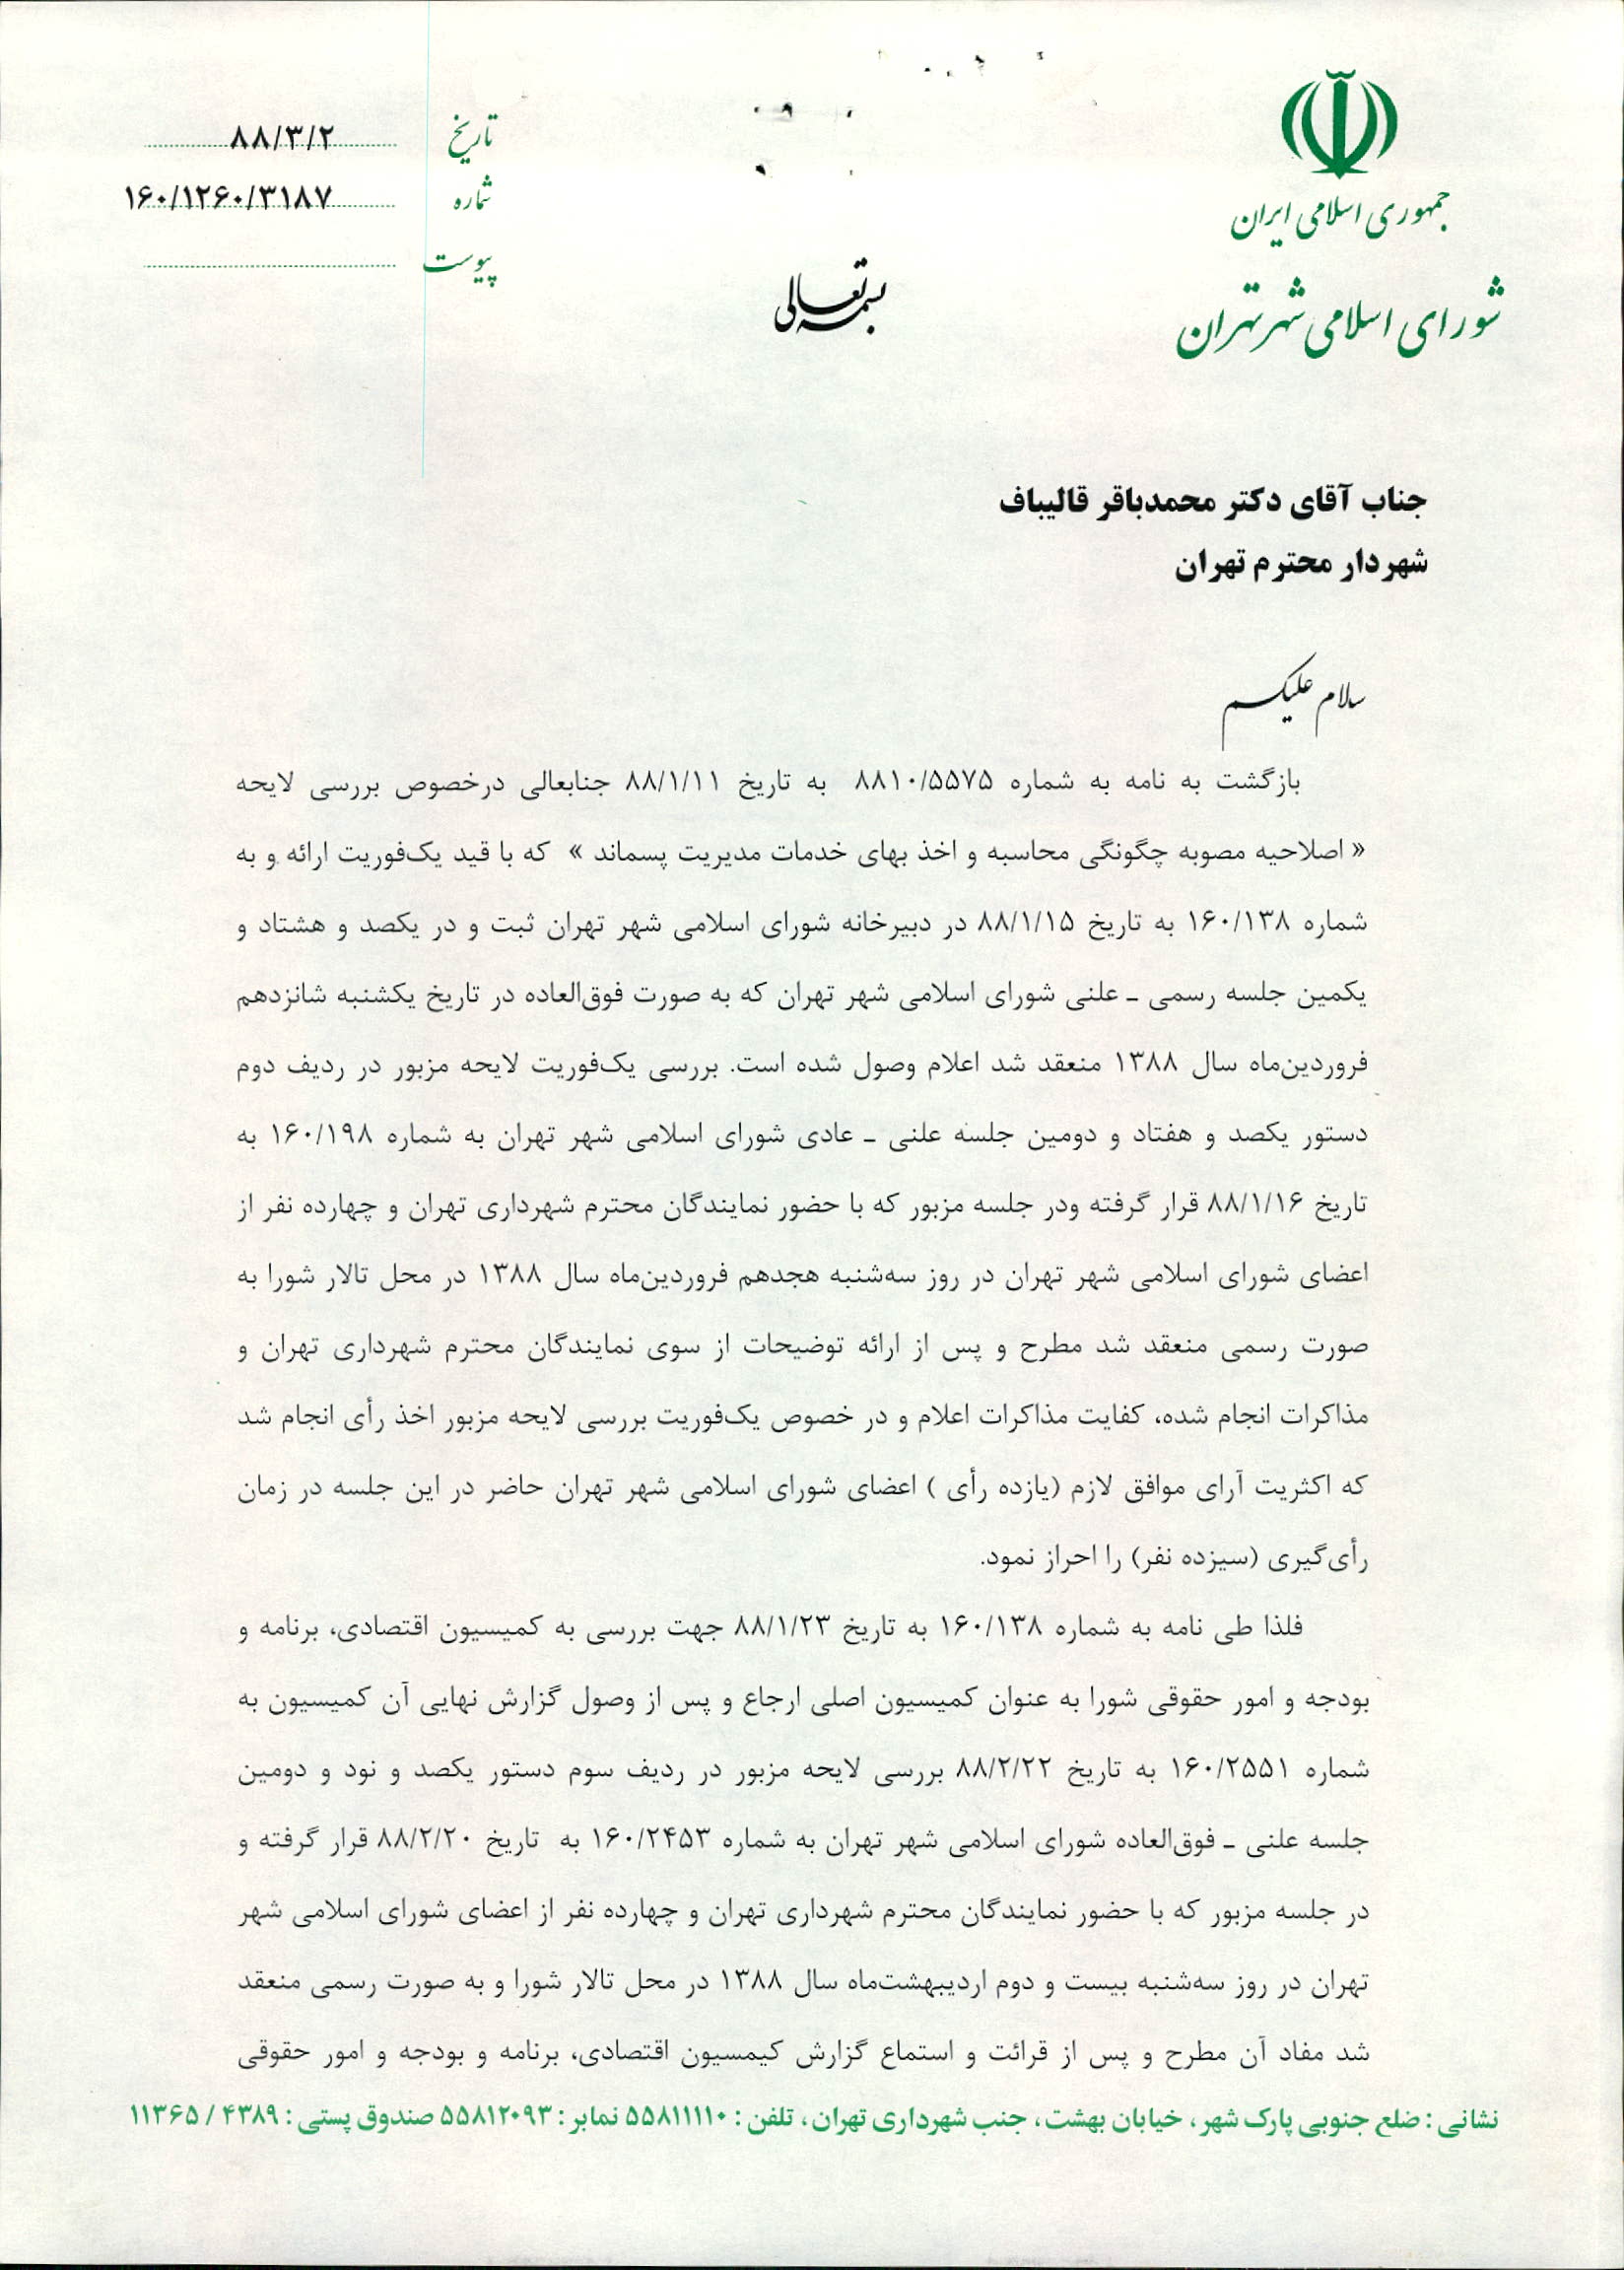 جمهوری اسلامی ایران
شورای اسلامی شهر تهران
تاریخ ۸۸/۳/۲
شماره ۱۶۰/۱۲۶۰/۳۱۸۷
پیوست
بسمه تعالی
جناب آقای دکتر محمدباقر قالیباف
شهردار محترم تهران
سلام علیکم
بازگشت به نامه به شماره ۸۸۱۰/۵۵۷۵ به تاریخ ۸۸/۱/۱۱ جنابعالی درخصوص بررسی لایحه
« اصلاحیه مصوبه چگونگی محاسبه و اخذ بهای خدمات مدیریت پسماند » که با قید یک‌فوریت ارائه و به
شماره ۱۶۰/۱۳۸ به تاریخ ۸۸/۱/۱۵ در دبیرخانه شورای اسلامی شهر تهران ثبت و در یکصد و هشتاد و
یکمین جلسه رسمی ـ علنی شورای اسلامی شهر تهران که به صورت فوق‌العاده در تاریخ یکشنبه شانزدهم
فروردین‌ماه سال ۱۳۸۸ منعقد شد اعلام وصول شده است. بررسی یک‌فوریت لایحه مزبور در ردیف دوم
دستور یکصد و هفتاد و دومین جلسه علنی ـ عادی شورای اسلامی شهر تهران به شماره ۱۶۰/۱۹۸ به
تاریخ ۸۸/۱/۱۶ قرار گرفته ودر جلسه مزبور که با حضور نمایندگان محترم شهرداری تهران و چهارده نفر از
اعضای شورای اسلامی شهر تهران در روز سه‌شنبه هجدهم فروردین‌ماه سال ۱۳۸۸ در محل تالار شورا به
صورت رسمی منعقد شد مطرح و پس از ارائه توضیحات از سوی نمایندگان محترم شهرداری تهران و
مذاکرات انجام شده، کفایت مذاکرات اعلام و در خصوص یک‌فوریت بررسی لایحه مزبور اخذ رأی انجام شد
که اکثریت آرای موافق لازم (یازده رأی ) اعضای شورای اسلامی شهر تهران حاضر در این جلسه در زمان
رأی‌گیری (سیزده نفر) را احراز نمود.
فلذا طی نامه به شماره ۱۶۰/۱۳۸ به تاریخ ۸۸/۱/۲۳ جهت بررسی به کمیسیون اقتصادی، برنامه و
بودجه و امور حقوقی شورا به عنوان کمیسیون اصلی ارجاع و پس از وصول گزارش نهایی آن کمیسیون به
شماره ۱۶۰/۲۵۵۱ به تاریخ ۸۸/۲/۲۲ بررسی لایحه مزبور در ردیف سوم دستور یکصد و نود و دومین
جلسه علنی ـ فوق‌العاده شورای اسلامی شهر تهران به شماره ۱۶۰/۲۴۵۳ به تاریخ ۸۸/۲/۲۰ قرار گرفته و
در جلسه مزبور که با حضور نمایندگان محترم شهرداری تهران و چهارده نفر از اعضای شورای اسلامی شهر
تهران در روز سه‌شنبه بیست و دوم اردیبهشت‌ماه سال ۱۳۸۸ در محل تالار شورا و به صورت رسمی منعقد
شد مفاد آن مطرح و پس از قرائت و استماع گزارش کیمسیون اقتصادی، برنامه و بودجه و امور حقوقی
نشانی : ضلع جنوبی پارک شهر ، خیابان بهشت ، جنب شهرداری تهران ، تلفن : ۵۵۸۱۱۱۱۰ نمابر : ۵۵۸۱۲۰۹۳ صندوق پستی : ۴۳۸۹ / ۱۱۳۶۵